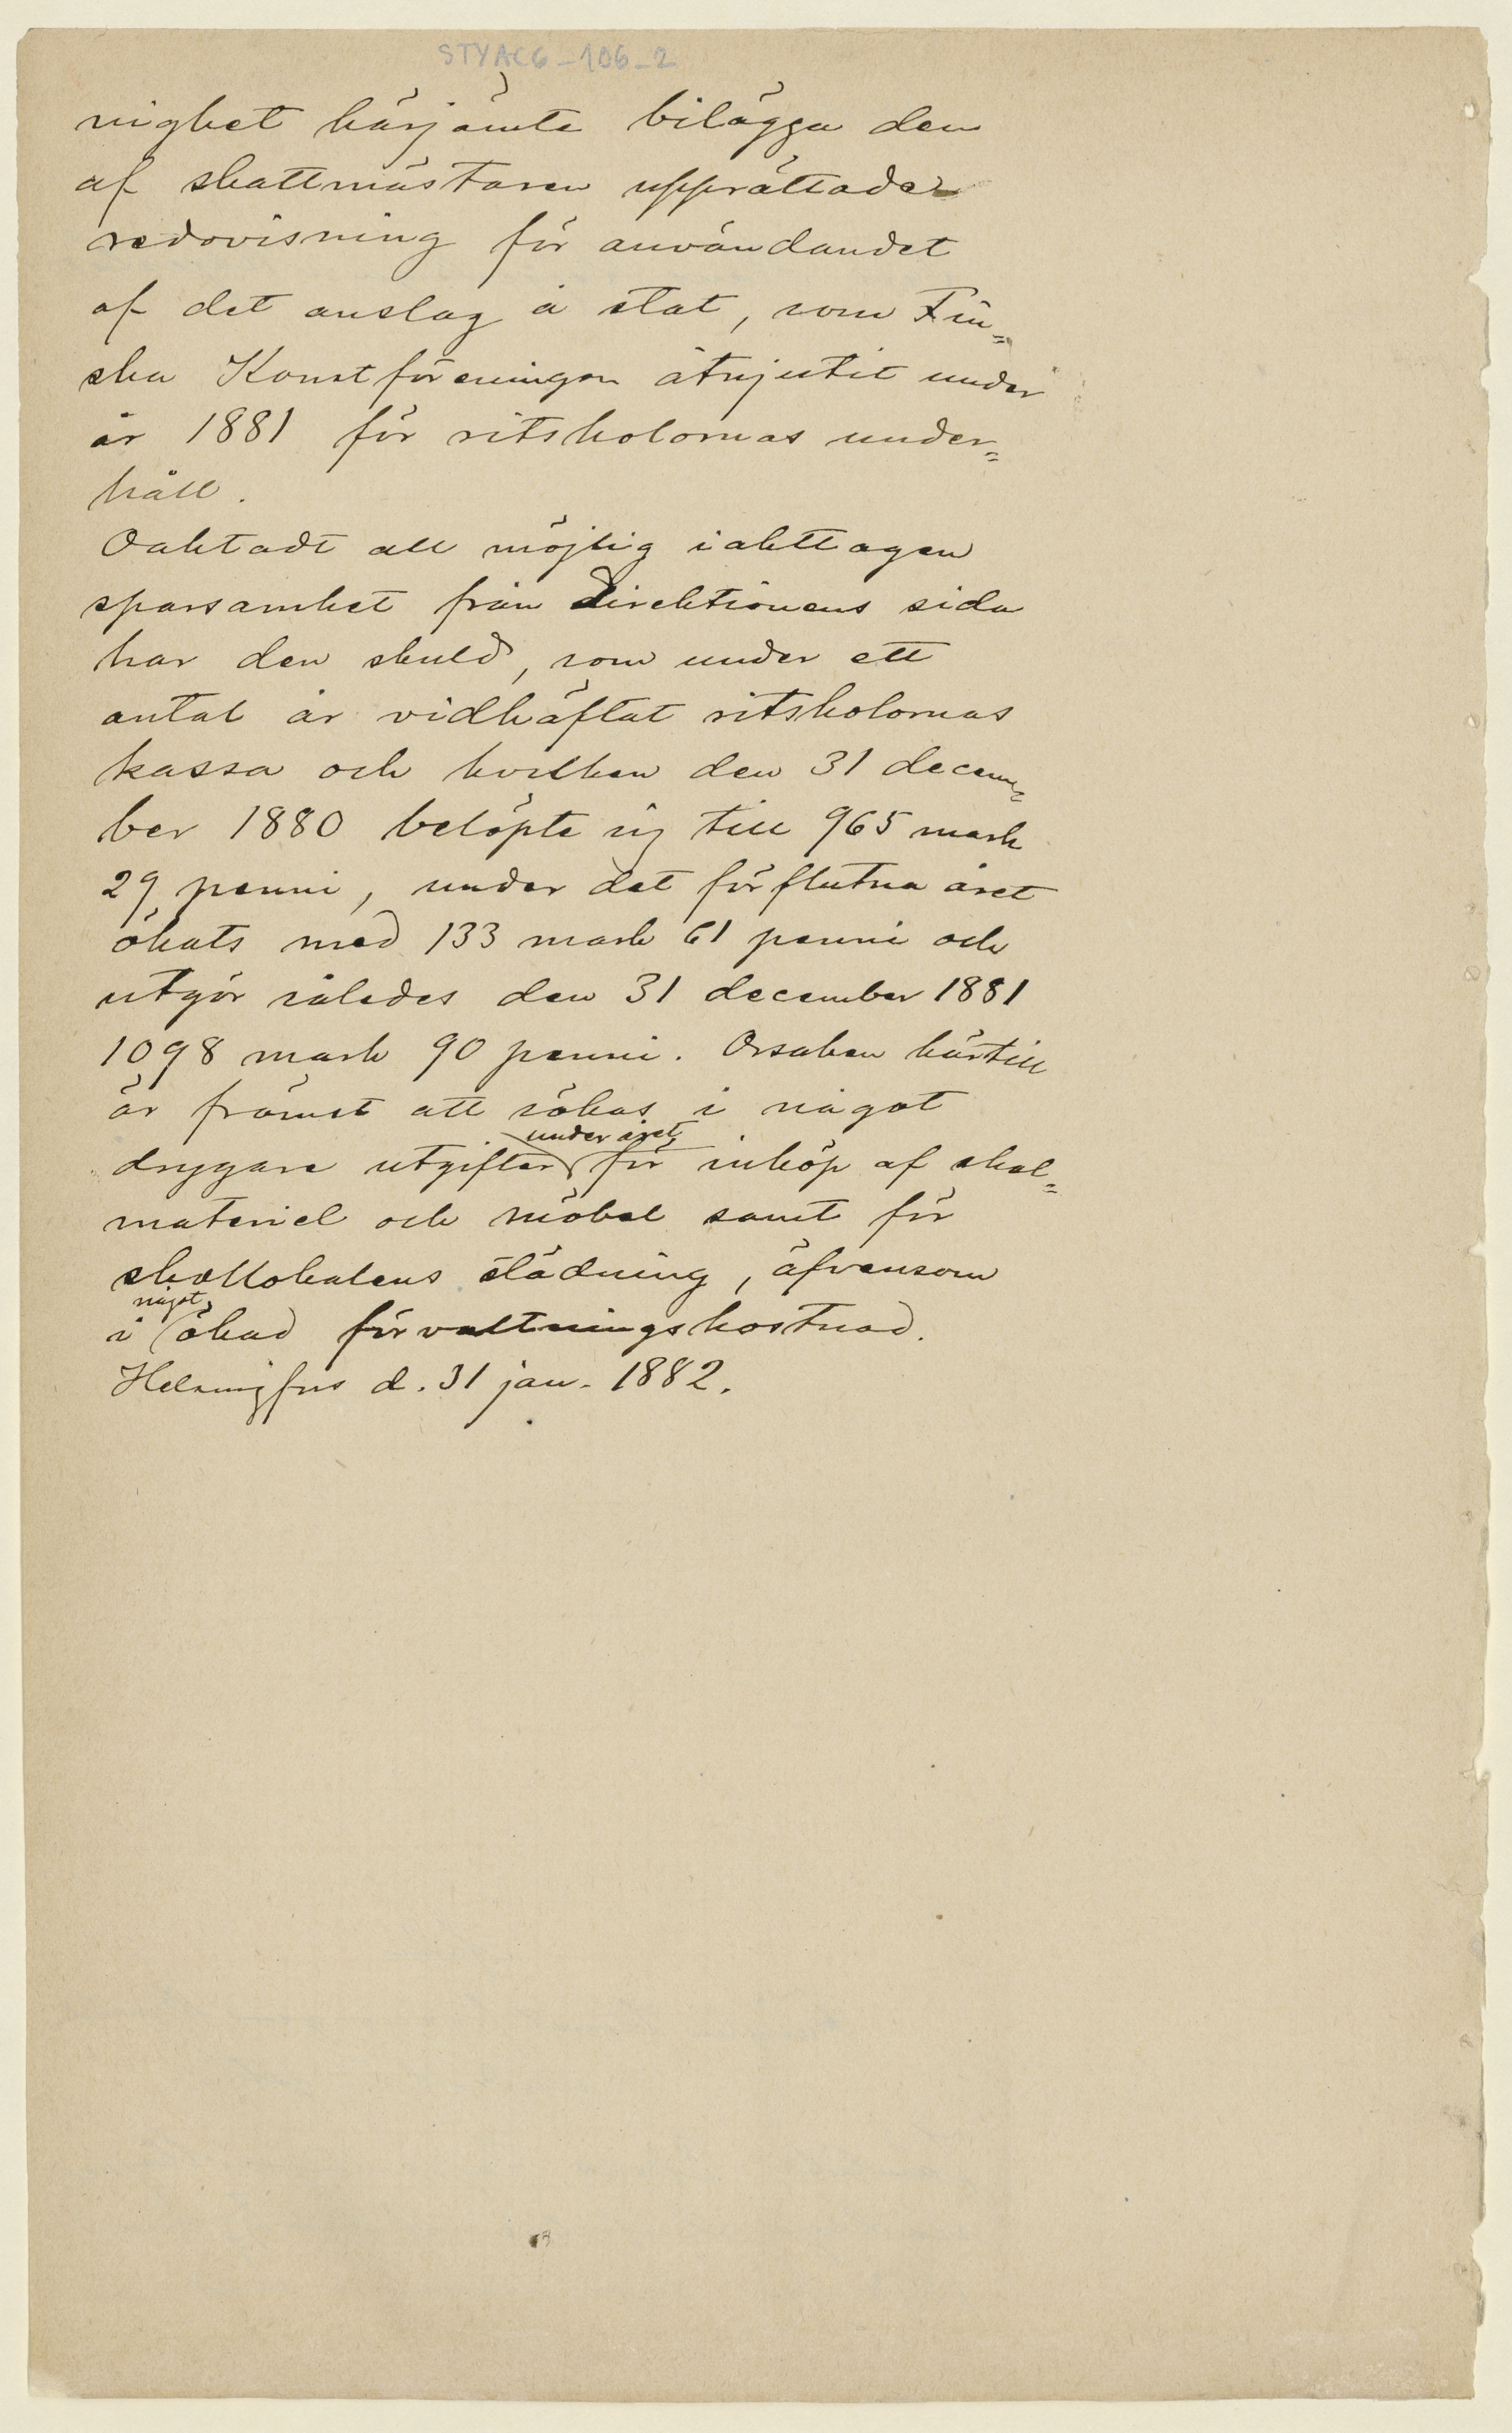 STYAC6_106_2
nighet härjämte bilägga den
af skattmästaren upprättade
redovisning för användandet
af det anslag å stat, som Fin=
ska Konstföreningen åtnjutit under
år 1881 för ritskolornas under=
håll.
Oaktadt all möjlig iakttagen
sparsamhet från Direktionens sida
har den skuld, som under ett
antal år vidhäftat ritskolornas
kassa och hvilken den 31 decem=
ber 1880 belöpte sig till 965 mark
29 penni, under det förflutna året
ökats med 133 mark 61 penni och
utgör således den 31 december 1881
1098 mark 90 penni. Orsaken härtill
är främst att sökas i något
under året
drygare utgifter för inköp af skol=
materiel och möbel samt för
skollokalens städning, äfvensom
något
i ökad förvaltningskostnad.
Helsingfors d. 31 jan. 1882.